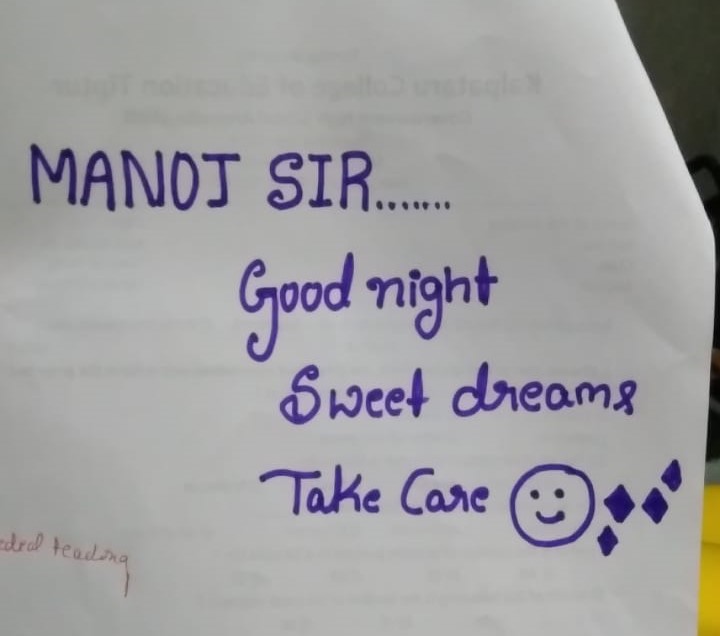 MANOJ SIR.......
Good night
Sweet dreams
Take Care